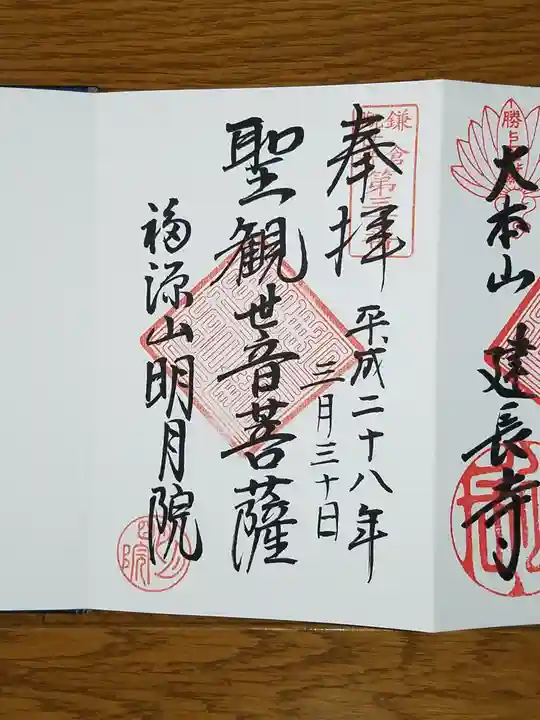 大本山 建長寺
奉拝
鎌倉
第三
平成二十八年
三月三十日
聖観世音菩薩
福源山明月院